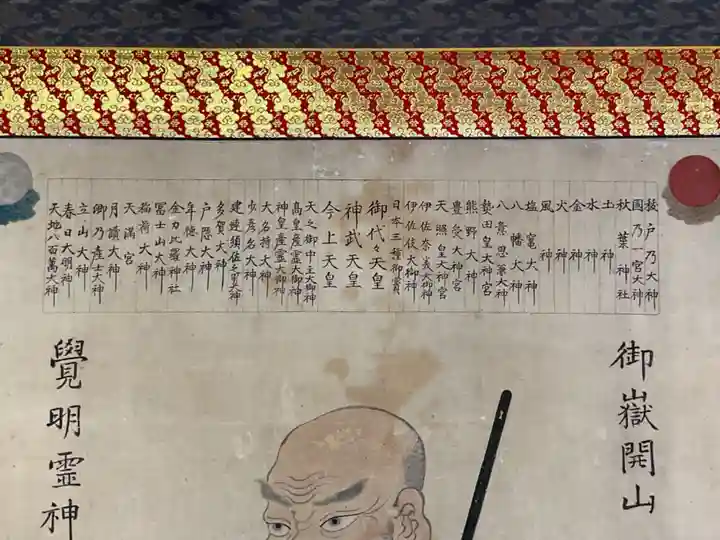 祓戸乃大神
國乃一宮大神
秋葉神社
土神
水神
金神
火神
風神
塩竃大神
八幡大神
八意思兼大神
熱田皇大神宮
熊野大神
豊受大神宮
天照皇大神宮
伊佐奈美大御神
伊佐伎大御神
日本三種御寶
御代々天皇
神武天皇
今上天皇
天之御中主大御神
高皇産霊大御神
神皇産霊大御神
大名持大神
少彦名大神
建速須佐之男大神
多賀大神
戸隠大神
年徳大神
金力比羅神社
冨士山大神
稲荷大神
天満宮
月讀大神
郷乃産土大神
立山大神
春日大明神
天地八百萬大神
御嶽開山
覺明霊神